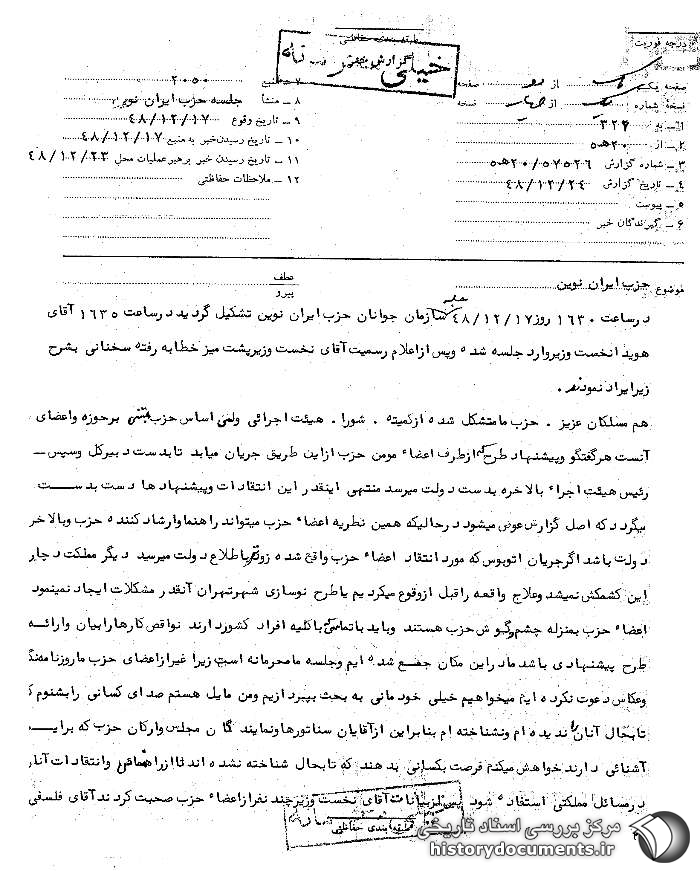 طبقه بندی حفاظتی
درجه فوریت
خیلی
گزارش خبر
صفحه یک از دو صفحه
نسخه شماره یک از چهار نسخه
۱ ـ به ۳۲۲
۲ ـ از ۲۰ هـ ۵
۳ ـ شماره گزارش ۲۰/۵۷۵۲۶ هـ ۵
۴ ـ تاریخ گزارش ۴۸/۱۲/۲۴
۵ ـ پیوست
۶ ـ گیرندگان خبر
۷ ـ منبع ۲۰۵۰
۸ ـ منشأ جلسه حزب ایران نوین
۹ ـ تاریخ وقوع ۴۸/۱۲/۱۷
۱۰ ـ تاریخ رسیدن خبر به منبع ۴۸/۱۲/۱۷
۱۱ ـ تاریخ رسیدن خبر برهبر عملیات محل ۴۸/۱۲/۲۳
۱۲ ـ ملاحظات حفاظتی
موضوع حزب ایران نوین
عطف
پیرو
درساعت ۱۶۳۰ روز ۴۸/۱۲/۱۷ جلسه سازمان جوانان حزب ایران نوین تشکیل گردید درساعت ۱۶۳۵ آقای
هویدا نخست وزیر وارد جلسه شده وپس از اعلام رسمیت آقای نخست وزیر پشت میز خطابه رفته سخنانی بشرح
زیر ایراد نمودند .
هم مسلکان عزیز . حزب ما متشکل شده از کمیته . شورا . هیئت اجرائی ولی اساس حزب مبتنی برحوزه واعضای
آنست هرگفتگو وپیشنهاد طرحی که از طرف اعضاء مومن حزب از این طریق جریان میابد تا بدست دبیرکل وسپس ـ
رئیس هیئت اجراء بالاخره بدست دولت میرسد منتهی اینقدر این انتقادات وپیشنهاد ها دست بدست
میگردد که اصل گزارش عوض میشود درحالیکه همین نظریه اعضاء حزب میتواند راهنما وارشاد کننده حزب وبالاخر
دولت باشد اگر جریان اتوبوس که مورد انتقاد اعضاء حزب واقع شده زودتر باطلاع دولت میرسید دیگر مملکت دچار
این کشمکش نمیشد وعلاج واقعه را قبل از وقوع میکردیم یا طرح نوسازی شهر تهران آنقدر مشکلات ایجاد نمینمود
اعضاء حزب بمنزله چشم وگوش حزب هستند وباید با تماسی که باکلیه افراد کشور دارند نواقص کارها رابیان وارائه
طرح پیشنهادی باشد ما در این مکان جمع شده ایم وجلسه ما محرمانه است زیرا غیر از اعضای حزب ما روزنامه نگ
وعکاس دعوت نکرده ایم میخواهیم خیلی خودمانی به بحث بپردازیم ومن مایل هستم صدای کسانی رابشنوم ک
تابحال آنان را ندیده ام ونشناخته ام بنابراین از آقایان سناتورها ونمایندگان مجلس وارکان حزب که برایـ
آشنائی دارند خواهش میکنم فرصت بکسانی بدهند که تابحال شناخته نشده اند تا از راهنمائی وانتقادات آنان
درمسائل مملکتی استفاده شود پس از بیانات آقای نخست وزیر چند نفر از اعضاء حزب صحبت کردند آقای فلسفی
طبقه بندی حفاظتی
مرکز بررسی اسناد تاریخی
historydocuments.ir